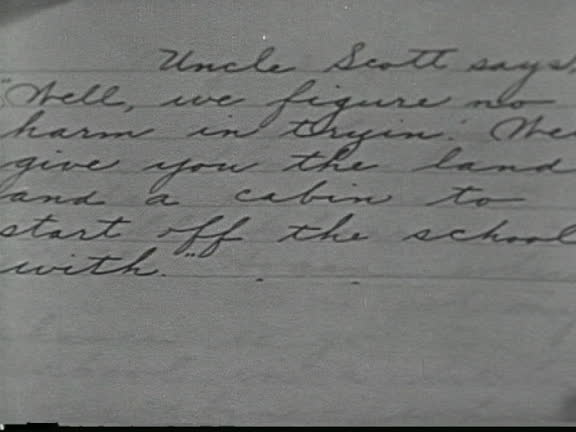 Uncle Scott says,
"Well, we figure no
harm in tryin'. We
give you the land
and a cabin to
start off the school
with."